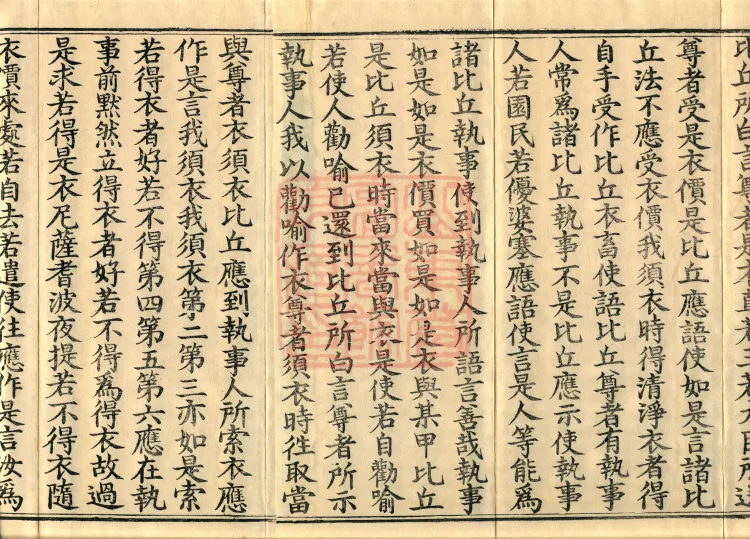 比丘所白言尊者是衣
尊者受是衣價是比丘應語使如是言諸比
丘法不應受衣價我須衣時得清淨衣者得
自手受作比丘衣畜使語比丘尊者有執事
人常爲諸比丘執事不是比丘應示使執事
人若園民若優婆塞應語使言是人等能爲
諸比丘執事使到執事人所語言善哉執事
如是如是衣價買如是如是衣與某甲比丘
是比丘須衣時當來當與衣是使若自勸喻
若使人勸喻已還到比丘所白言尊者所示
執事人我以勸喻作衣尊者須衣時徃取當
與尊者衣須衣比丘應到執事人所索衣應
作是言我須衣我須衣第二第三亦如是索
若得衣者好若不得第四第五第六應在執
事前默然立得衣者好若不得爲得衣故過
是求若得是衣尼薩耆波夜提若不得衣隨
衣價來處若自去若遣使往應作是言汝爲